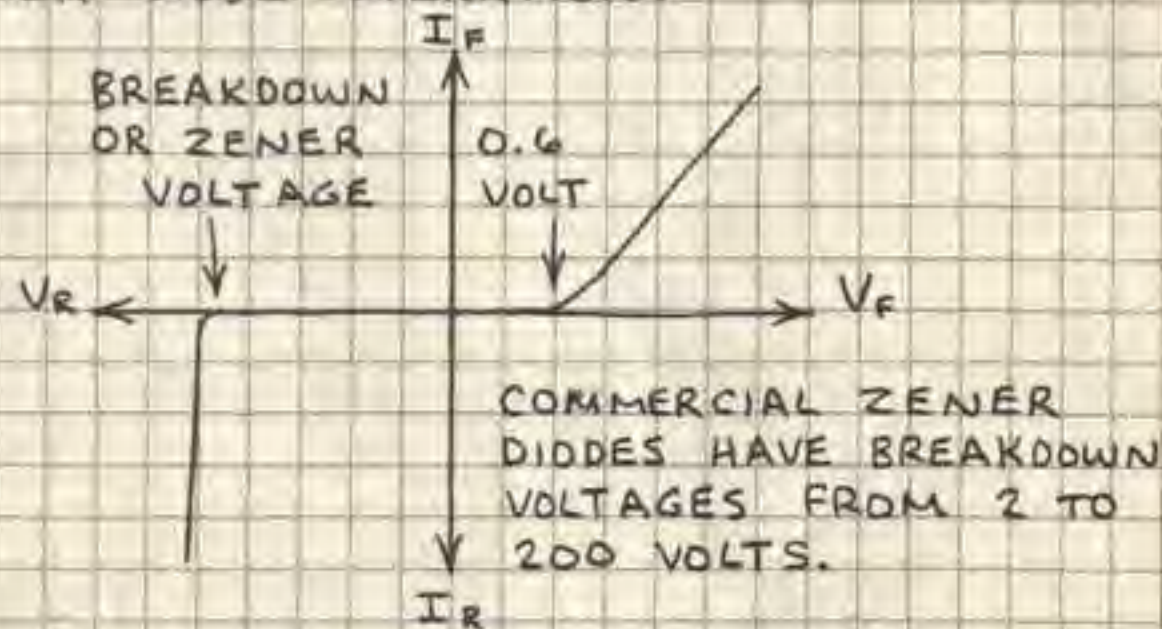 I_F
BREAKDOWN
OR ZENER
VOLTAGE
0.6
VOLT
V_R
V_F
COMMERCIAL ZENER
DIODES HAVE BREAKDOWN
VOLTAGES FROM 2 TO
200 VOLTS.
I_R